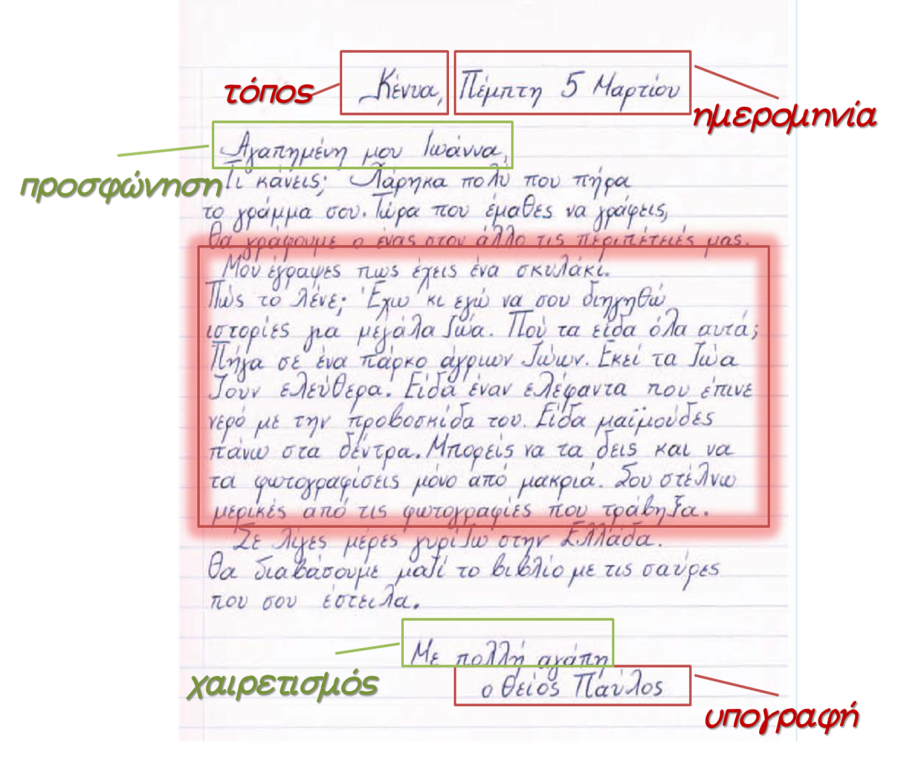 τόπος
Κένυα, Πέμπτη 5 Μαρτίου
ημερομηνία
Αγαπημένη μου Ιωάννα,
προσφώνηση
Τι κάνεις; Χάρηκα πολύ που πήρα
το γράμμα σου. Τώρα που έμαθες να γράφεις,
θα γράφουμε ο ένας στον άλλο τις περιπέτειές μας.
Μου έγραψες πως έχεις ένα σκυλάκι.
Πώς το λένε; Έχω κι εγώ να σου διηγηθώ
ιστορίες για μεγάλα ζώα. Πού τα είδα όλα αυτά;
Πήγα σε ένα πάρκο άγριων ζώων. Εκεί τα ζώα
ζουν ελεύθερα. Είδα έναν ελέφαντα που έπινε
νερό με την προβοσκίδα του. Είδα μαϊμούδες
πάνω στα δέντρα. Μπορείς να τα δεις και να
τα φωτογραφίσεις μόνο από μακριά. Σου στέλνω
μερικές από τις φωτογραφίες που τράβηξα.
Σε λίγες μέρες γυρίζω στην Ελλάδα.
Θα διαβάσουμε μαζί το βιβλίο με τις σαύρες
που σου έστειλα.
Με πολλή αγάπη
χαιρετισμός
ο θείος Παύλος
υπογραφή